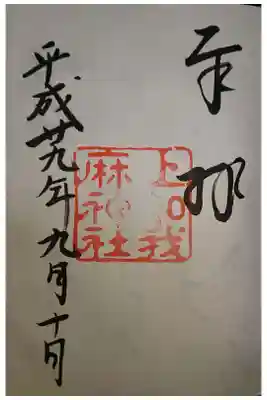 奉拝
上知我
麻神社
平成廿九年九月十日